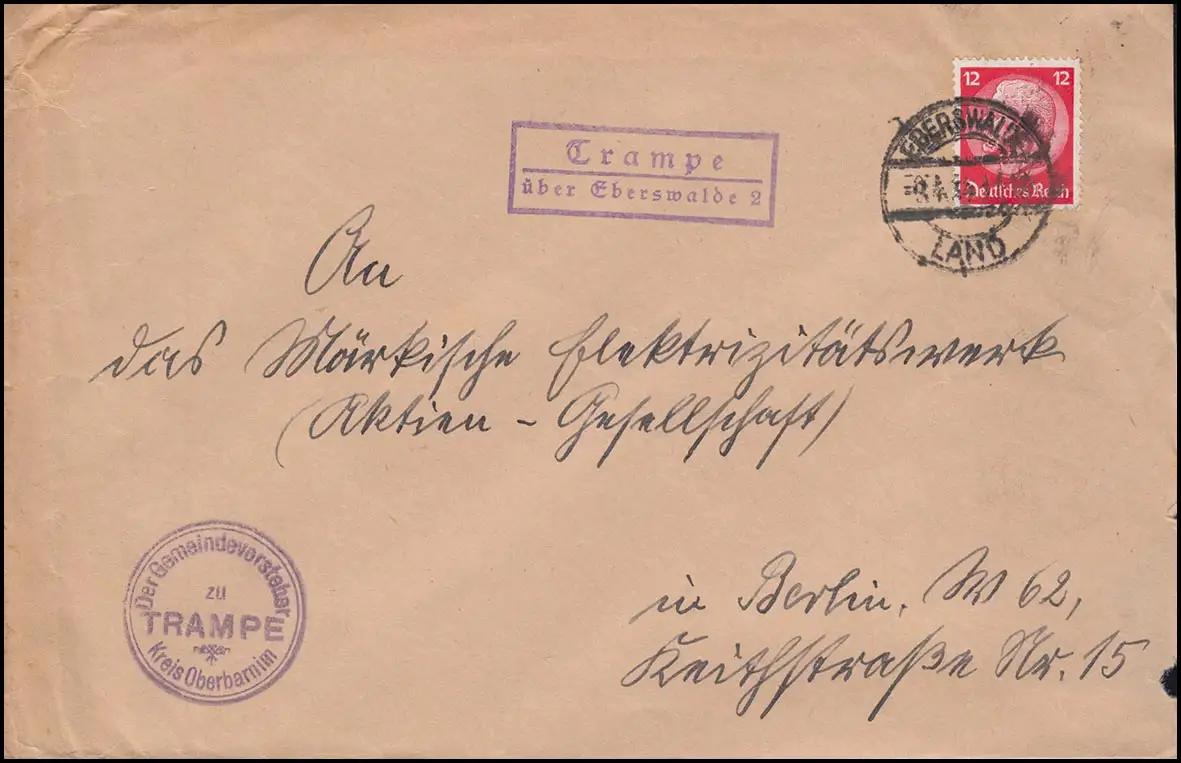 12 12
Deutsches Reich
EBERSWALDE
LAND
Trampe
über Eberswalde 2
An
das Märkische Elektrizitätswerk
(Aktien-Gesellschaft)
in Berlin, W 62,
Keithstraße Nr. 15
Der Gemeindevorsteher
zu
TRAMPE
Kreis Oberbarnim